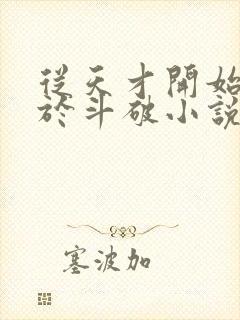 從天才開始
於斗破小說
塞波加